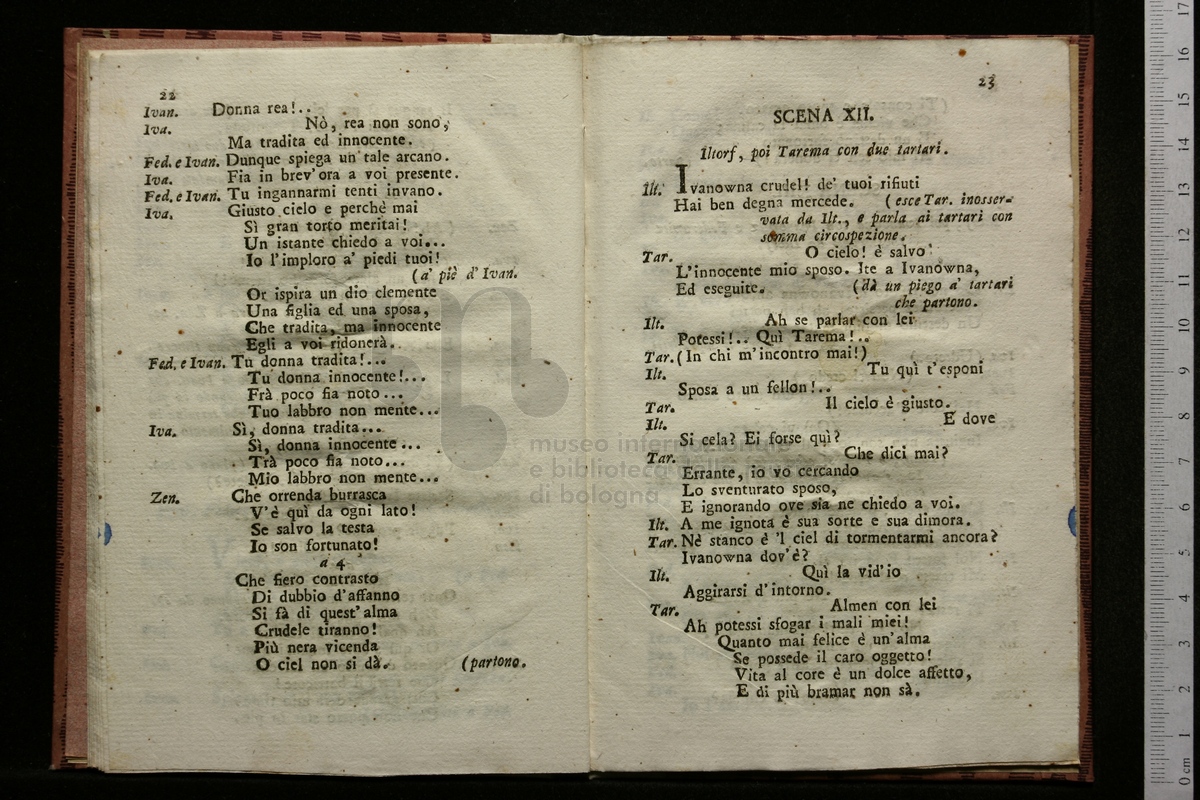 22
Ivan. Donna rea!..
Iva. Nò, rea non sono,
Ma tradita ed innocente.
Fed. e Ivan. Dunque spiega un' tale arcano.
Iva. Fia in brev'ora a voi presente.
Fed. e Ivan. Tu ingannarmi tenti invano.
Iva. Giusto cielo e perchè mai
Sì gran torto meritai!
Un istante chiedo a voi...
Io l'imploro a' piedi tuoi!
(a' piè d' Ivan.
Or ispira un dio clemente
Una figlia ed una sposa,
Che tradita, ma innocente
Egli a voi ridonerà..
Fed. e Ivan. Tu donna tradita!...
Tu donna innocente!...
Frà poco fia noto...
Tuo labbro non mente...
Iva. Sì, donna tradita...
Sì, donna innocente...
Trà poco fia noto...
Mio labbro non mente...
Zen. Che orrenda burrasca
V'è quì da ogni lato!
Se salvo la testa
Io son fortunato!
a 4
Che fiero contrasto
Di dubbio d'affanno
Si fà di quest' alma
Crudele tiranno!
Più nera vicenda
O ciel non si dà. (partono.
23
SCENA XII.
Iltorf, poi Tarema con due tartari.
Ilt. Ivanowna crudel! de' tuoi rifiuti
Hai ben degna mercede. (esce Tar. inosser-
vata da Ilt., e parla ai tartari con
somma circospezione.
Tar. O cielo! è salvo
L'innocente mio sposo. Ite a Ivanowna,
Ed eseguite. (dà un piego a' tartari
che partono.
Ilt. Ah se parlar con lei
Potessi!.. Quì Tarema!..
Tar. (In chi m'incontro mai!)
Ilt. Tu quì t'esponi
Sposa a un fellon!..
Tar. Il cielo è giusto.
Ilt. E dove
Si cela? Ei forse quì?
Tar. Che dici mai?
Errante, io vo cercando
Lo sventurato sposo,
E ignorando ove sia ne chiedo a voi.
Ilt. A me ignota è sua sorte e sua dimora.
Tar. Nè stanco è 'l ciel di tormentarmi ancora?
Ivanowna dov'è?
Ilt. Quì la vid'io
Aggirarsi d'intorno.
Tar. Almen con lei
Ah potessi sfogar i mali miei!
Quanto mai felice è un'alma
Se possede il caro oggetto!
Vita al core è un dolce affetto,
E di più bramar non sà.
museo internazionale
e biblioteca
di bologna
0 cm 1 2 3 4 5 6 7 8 9 10 11 12 13 14 15 16 17